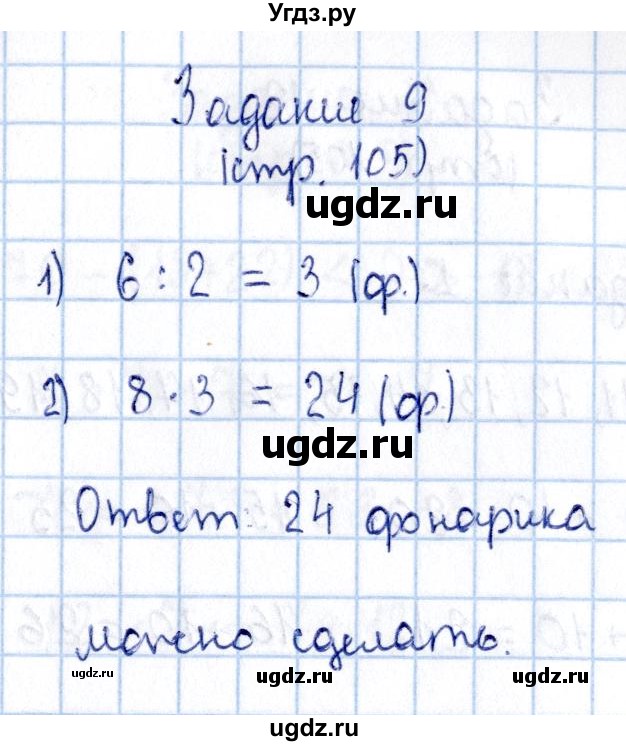 Угдз.ру
Задание 9
(стр. 105)
ugdz.ru
1) 6 : 2 = 3 (ф.)
2) 8 · 3 = 24 (ф.)
ugdz.ru
Ответ: 24 фонарика
можно сделать.
ugdz.ru ugdz.ru ugdz.ru
ugdz.ru